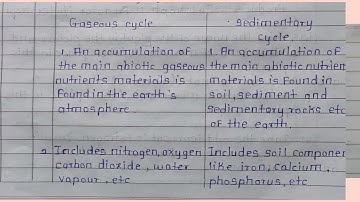 Gaseous cycle
sedimentary
cycle
1. An accumulation of
the main abiotic gaseous
nutrients materials is
found in the earth's
atmosphere.
1. An accumulation of
the main abiotic nutrien
materials is found in
soil, sediment and
sedimentary rocks etc
of the earth.
2. Includes nitrogen, oxygen
carbon dioxide, water
vapour, etc
Includes soil componen
like iron, calcium,
phosphorus, etc